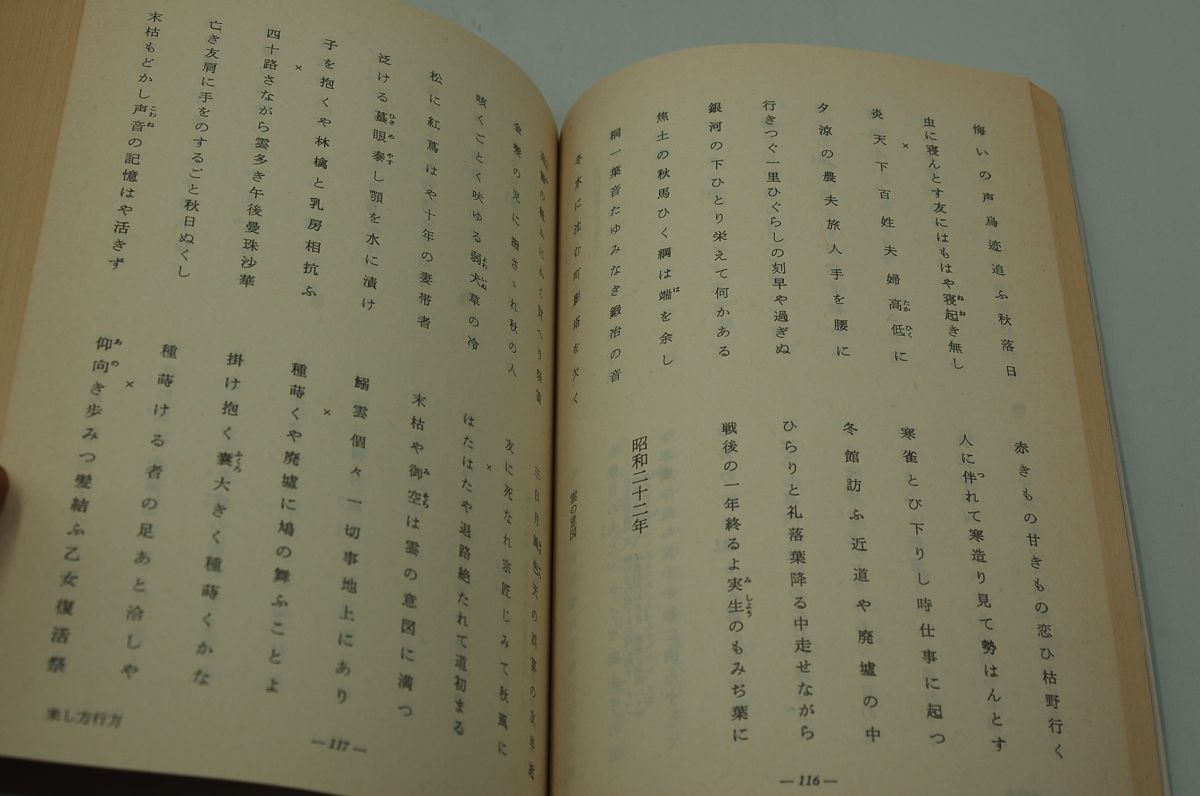 悔いの声鳥迹追ふ秋落日
虫に寝んとす友にはもはや寝起き無し
×
炎天下百姓夫婦高低に
夕涼の農夫旅人手を腰に
行きつぐ一里ひぐらしの刻早や過ぎぬ
銀河の下ひとり栄えて何かある
焦土の秋馬ひく綱は端を余し
桐一葉音たゆみなき鍛冶の音
冬水に沈む町影塔を欠く
赤きもの甘きもの恋ひ枯野行く
人に伴れて寒造り見て勢はんとす
寒雀とび下りし時仕事に起つ
冬館訪ふ近道や廃墟の中
ひらりと礼落葉降る中走せながら
戦後の一年終るよ実生のもみぢ葉に
昭和二十二年
雲の意図
—116—
金髪の児に指さゝれ秋の人
咳くごとく吠ゆる弱犬草の冷
松に紅蔦はや十年の妻帯者
泛ける蟇眼泰し顎を水に漬け
子を抱くや林檎と乳房相抗ふ
×
四十路さながら雲多き午後曼珠沙華
亡き友肩に手をのするごと秋日ぬくし
末枯もどかし声音の記憶はや活きず
友に死なれ宗匠じみて秋風に
×
はたはたや退路絶たれて道初まる
末枯や御空は雲の意図に満つ
鰯雲個々一切事地上にあり
×
種蒔くや廃墟に鳩の舞ふことよ
掛け抱く嚢大きく種蒔くかな
種蒔ける者の足あと洽しや
×
仰向き歩みつ髪結ふ乙女復活祭
来し方行方
—117—